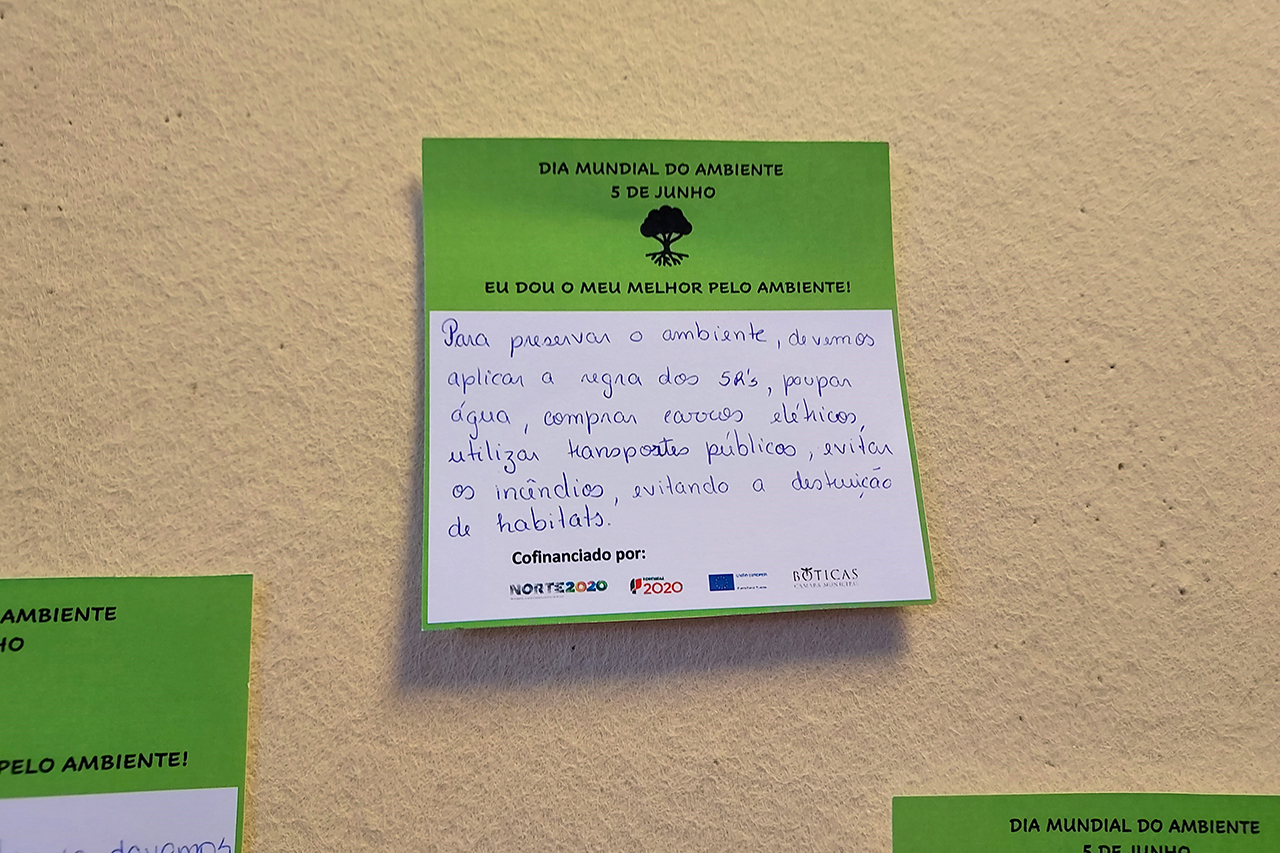 DIA MUNDIAL DO AMBIENTE
5 DE JUNHO
EU DOU O MEU MELHOR PELO AMBIENTE!
Para preservar o ambiente, devemos
aplicar a regra dos 5R's, poupar
água, comprar carros elétricos,
utilizar transportes públicos, evitar
os incêndios, evitando a destruição
de habitats.
Cofinanciado por:
NORTE2020
PORTUGAL
2020
UNIÃO EUROPEIA
BOTICAS
CÂMARA MUNICIPAL
AMBIENTE
HO
PELO AMBIENTE!
devemos
DIA MUNDIAL DO AMBIENTE
5 DE JUNHO